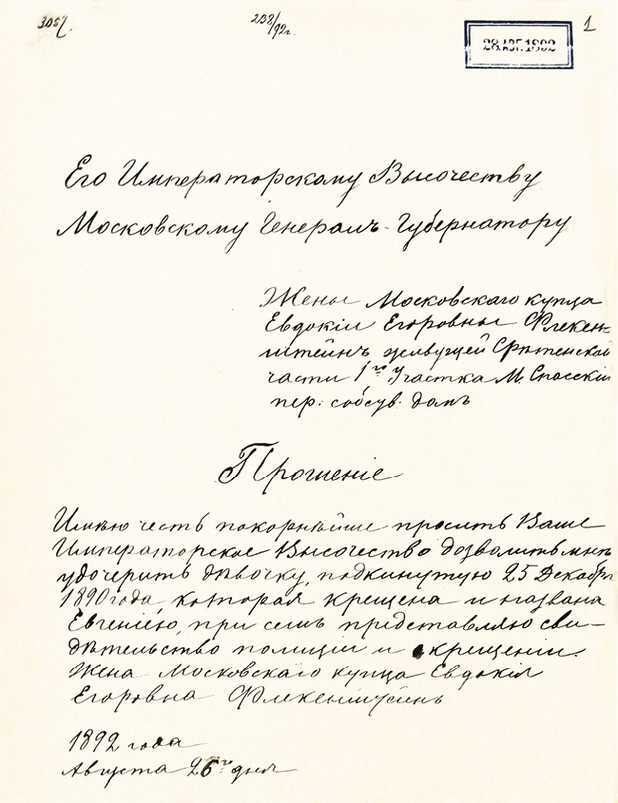 3057.
232/92 г.
28 АВГ. 1892
1
Его Императорскому Высочеству
Московскому Генералъ-Губернатору
Жены Московскаго купца
Евдокіи Егоровны Флекен-
штейнъ живущей Срѣтенской
части 1го участка М. Спасскій
пер: собсув. домъ
Прошеніе
Имѣю честь покорнѣйше просить Ваше
Императорское Высочество дозволить мнѣ
удочерить дѣвочку, подкинутую 25 Декабря
1890 года, которая крещена и названа
Евгеніею, при семъ представляю сви-
дѣтельство полиціи и о крещеніи.
Жена Московскаго купца Евдокія
Егоровна Флекенштейнъ
1892 года
Августа 26го дня